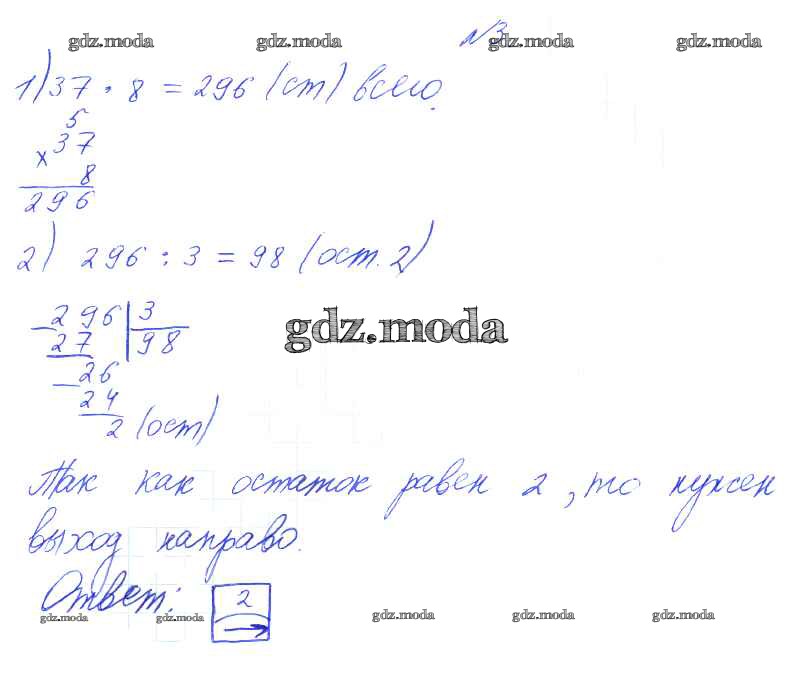 gdz.moda gdz.moda gdz.moda gdz.moda
№3
1) 37 · 8 = 296 (ст) всего.
5
× 37
8
296
2) 296 : 3 = 98 (ост. 2)
296 3
27 98
26
24
2 (ост)
gdz.moda
Так как остаток равен 2, то нужен
выход направо.
Ответ: 2 →
gdz.moda gdz.moda gdz.moda gdz.moda gdz.moda